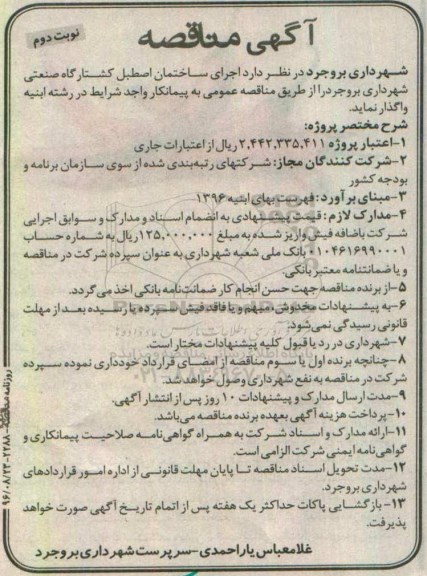 آگهی مناقصه
نوبت دوم
شهرداری بروجرد در نظر دارد اجرای ساختمان اصطبل کشتارگاه صنعتی
شهرداری بروجرد را از طریق مناقصه عمومی به پیمانکار واجد شرایط در رشته ابنیه
واگذار نماید.
شرح مختصر پروژه:
۱-اعتبار پروژه ۲,۴۴۲,۳۳۵,۴۱۱ ریال از اعتبارات جاری
۲-شرکت کنندگان مجاز: شرکتهای رتبه‌بندی شده از سوی سازمان برنامه و
بودجه کشور
۳-مبنای برآورد: فهرست بهای ابنیه ۱۳۹۶
۴-مدارک لازم: قیمت پیشنهادی به انضمام اسناد و مدارک و سوابق اجرایی
شرکت باضافه فیش واریز شده به مبلغ ۱۲۵,۰۰۰,۰۰۰ ریال به شماره حساب
۰۱۰۴۶۱۶۹۹۰۰۰۱ بانک ملی شعبه شهرداری به عنوان سپرده شرکت در مناقصه
و یا ضمانتنامه معتبر بانکی.
۵-از برنده مناقصه جهت حسن انجام کار ضمانت‌نامه بانکی اخذ می‌گردد.
۶-به پیشنهادات مخدوش، مبهم و یا فاقد فیش سپرده یا رسیده بعد از مهلت
قانونی رسیدگی نمی‌شود.
۷-شهرداری در رد یا قبول کلیه پیشنهادات مختار است.
۸-چنانچه برنده اول یا سوم مناقصه از امضای قرارداد خودداری نموده سپرده
شرکت در مناقصه به نفع شهرداری وصول خواهد شد.
۹-مدت ارسال مدارک و پیشنهادات ۱۰ روز پس از انتشار آگهی.
۱۰-پرداخت هزینه آگهی بعهده برنده مناقصه می‌باشد.
۱۱-ارائه مدارک و اسناد شرکت به همراه گواهی‌نامه صلاحیت پیمانکاری و
گواهی‌نامه ایمنی شرکت الزامی است.
۱۲-مدت تحویل اسناد مناقصه تا پایان مهلت قانونی از اداره امور قراردادهای
شهرداری بروجرد.
۱۳-بازگشایی پاکات حداکثر یک هفته پس از اتمام تاریخ آگهی صورت خواهد
پذیرفت.
غلامعباس یاراحمدی-سرپرست شهرداری بروجرد
روزنامه مناقصه-۲۲۸۸-۹۶/۰۸/۲۳